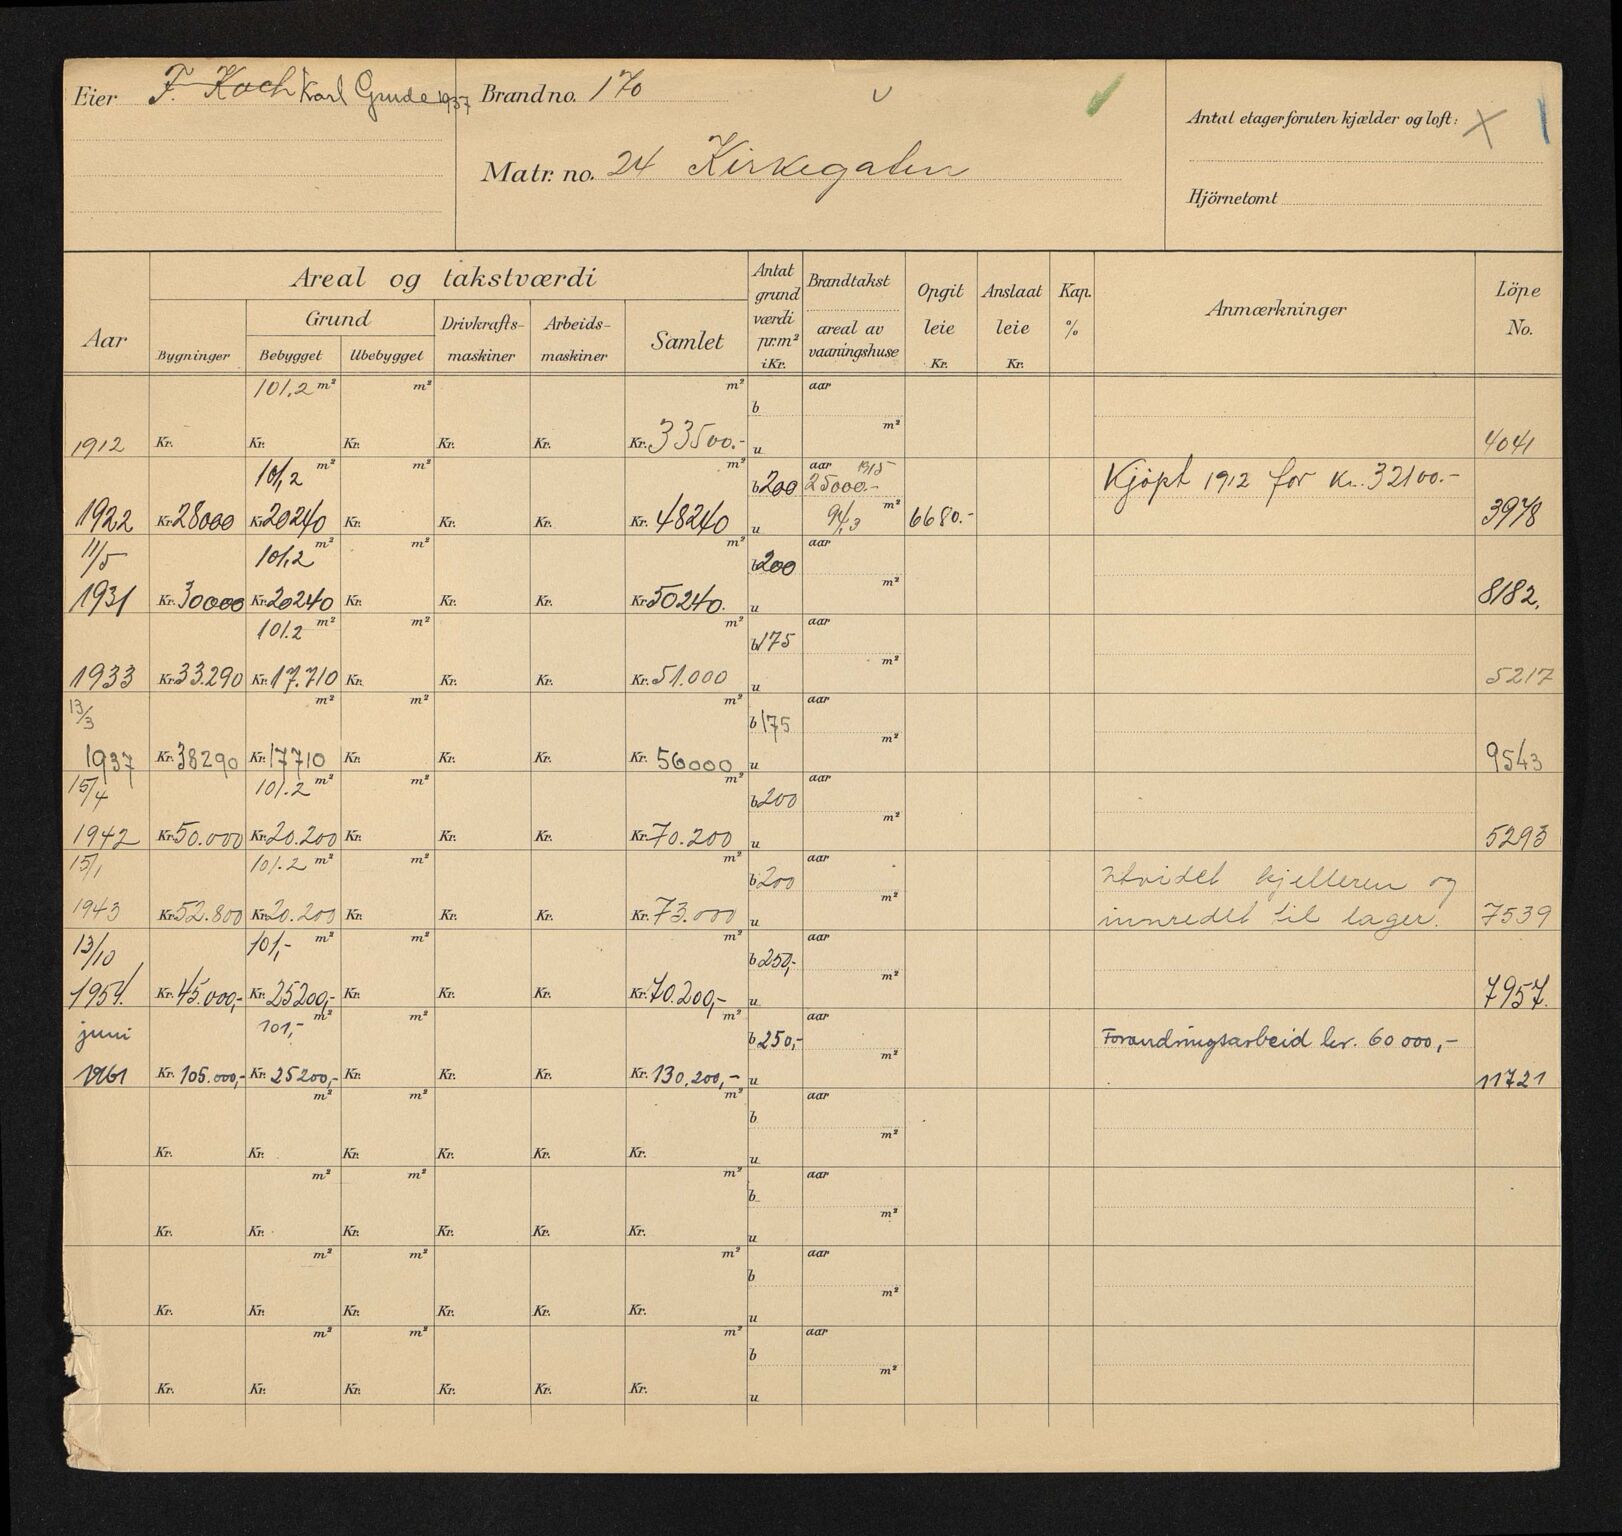 Eier F. Koch Karl Grude 1937
Brand no. 170
Matr. no. 24 Kirkegaten
Antal etager foruten kjælder og loft: X
Hjörnetomt
Aar
Areal og takstværdi
Grund
Bygninger Bebygget Ubebygget Drivkrafts-maskiner Arbeids-maskiner Samlet
Antat grund værdi pr. m² i Kr.
Brandtakst
areal av vaaningshuse
Opgit leie Kr.
Anslaat leie Kr.
Kap. %
Anmærkninger
Löpe No.
101,2 m² m² m² aar
b
m²
1912 Kr. Kr. Kr. Kr. Kr. Kr. 33500.- u 4041
101,2 m² m² m² b 200 aar 1915 25000.- Kjøpt 1912 for Kr. 32100.-
1922 Kr. 28000 Kr. 20240 Kr. Kr. Kr. Kr. 48240 u 94,3 m² 6680.- 3978
11/5 101,2 m² m² m² b 200 aar
m²
1931 Kr. 30000 Kr. 20240 Kr. Kr. Kr. Kr. 50240. u 8182.
101.2 m² m² m² b 175 aar
m²
1933 Kr. 33.290 Kr. 17.710 Kr. Kr. Kr. Kr. 51.000 u 5217
13/3 m² m² m² b 175 aar
m²
1937 Kr. 38290 Kr. 17710 Kr. Kr. Kr. Kr. 56000 u 9543
15/4 101.2 m² m² m² b 200 aar
m²
1942 Kr. 50.000 Kr. 20.200 Kr. Kr. Kr. Kr. 70.200 u 5293
15/1 101.2 m² m² m² b 200 aar Utvidet kjelleren og
m²
1943 Kr. 52.800 Kr. 20.200 Kr. Kr. Kr. Kr. 73.000 u innredet til lager. 7539
13/10 101,- m² m² m² b 250,- aar
m²
1954. Kr. 45.000,- Kr. 25200,- Kr. Kr. Kr. Kr. 70.200,- u 7957.
juni 101,- m² m² m² b 250,- aar Forandringsarbeid kr. 60 000,-
m²
1961 Kr. 105.000,- Kr. 25200,- Kr. Kr. Kr. Kr. 130.200,- u 11721
m² m² m² aar
b
m²
Kr. Kr. Kr. Kr. Kr. Kr. u
m² m² m² aar
b
m²
Kr. Kr. Kr. Kr. Kr. Kr. u
m² m² m² aar
b
m²
Kr. Kr. Kr. Kr. Kr. Kr. u
m² m² m² aar
b
m²
Kr. Kr. Kr. Kr. Kr. Kr. u